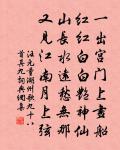 一出宫门上画船
红红白白艳神仙
山长水远愁无那
又见江南月上弦
汪元量湖州歌九十八
首其九 词典网集